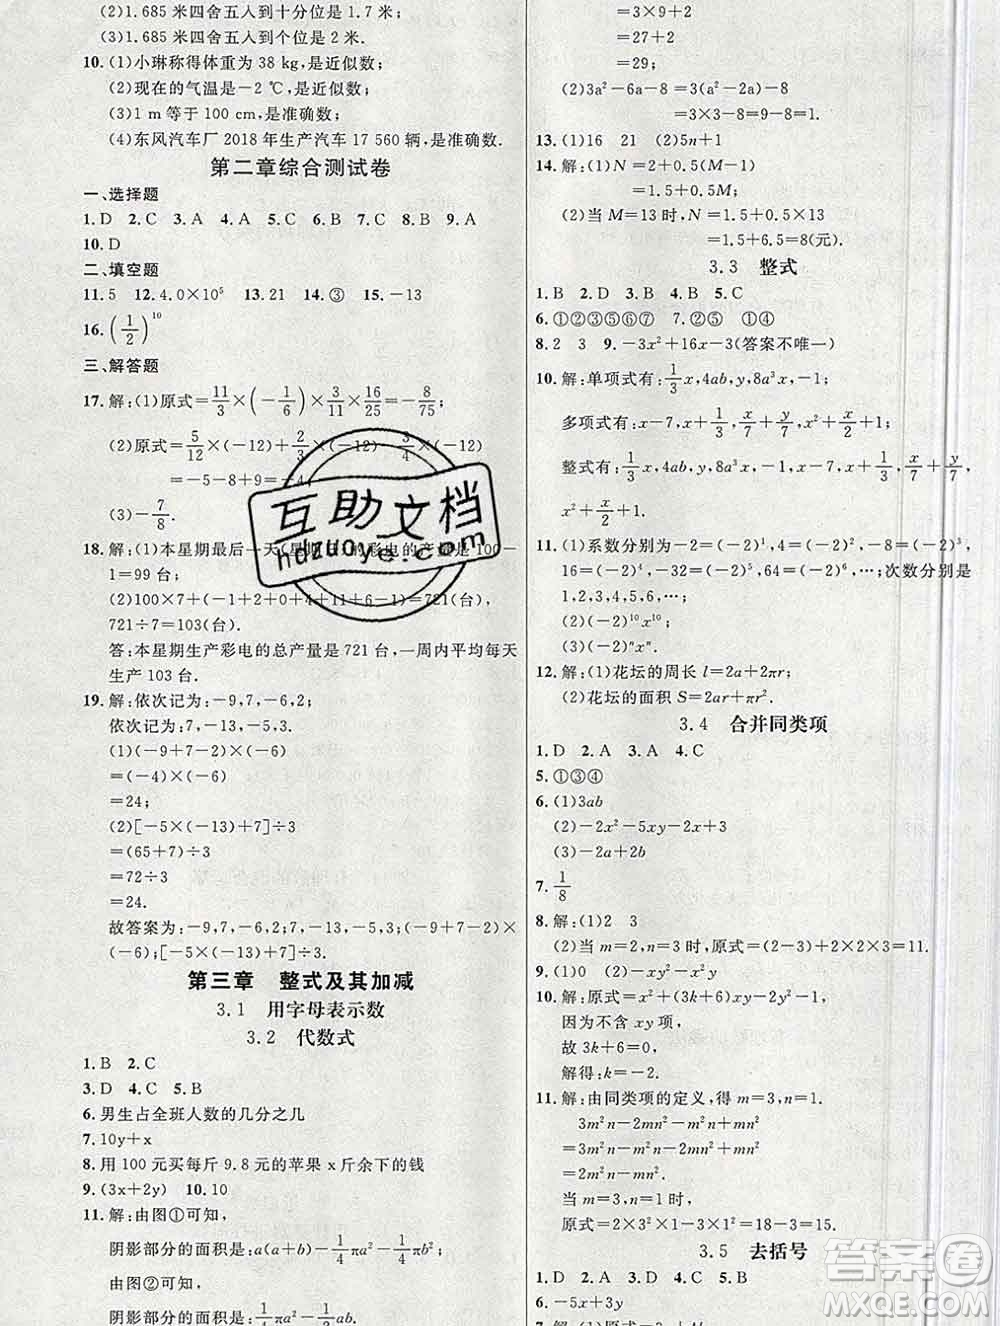 (2)1.685 米四舍五入到十分位是 1.7 米;
(3)1.685 米四舍五入到个位是 2 米.
10.(1)小琳称得体重为 38 kg,是近似数;
(2)现在的气温是-2 ℃,是近似数;
(3)1 m 等于 100 cm,是准确数;
(4)东风汽车厂 2018 年生产汽车 17 560 辆,是准确数.
第二章综合测试卷
一、选择题
1.D 2.C 3.A 4.A 5.C 6.B 7.B 8.B 9.A
10.D
二、填空题
11.5 12.4.0×10⁵ 13.21 14.③ 15.-13
16.(1/2)¹⁰
三、解答题
17.解:(1)原式=11/3×(-1/6)×3/11×16/25=-8/75
(2)原式=5/12×(-12)+2/3×(-12)-3/4×(-12)
=-5-8+9=-4
(3)-7/8.
18.解:(1)本星期最后一天(星期日)的彩电的产量是 100-
1=99(台);
(2)100×7+(-1-2+0+4+11+6-1)=721(台),
721÷7=103(台).
答:本星期生产彩电的总产量是 721 台,一周内平均每天
生产 103 台.
19.解:依次记为:-9,7,-6,2;
依次记为:7,-13,-5,3.
(1)(-9+7-2)×(-6)
=(-4)×(-6)
=24;
(2)[-5×(-13)+7]÷3
=(65+7)÷3
=72÷3
=24.
故答案为:-9,7,-6,2;7,-13,-5,3;(-9+7-2)×
(-6),[-5×(-13)+7]÷3.
第三章 整式及其加减
3.1 用字母表示数
3.2 代数式
1.B 2.C
3.D 4.C 5.B
6.男生占全班人数的几分之几
7.10y+x
8.用 100 元买每斤 9.8 元的苹果 x 斤余下的钱
9.(3x+2y) 10.10
11.解:由图①可知,
阴影部分的面积是:a(a+b)-1/4πa²-1/4πb²;
由图②可知,
阴影部分的面积是:
=3×9+2
=27+2
=29;
(2)3a²-6a-8=3(a²-2a)-8
=3×3-8=1.
13.(1)16 21 (2)5n+1
14.解:(1)N=2+0.5(M-1)
=1.5+0.5M;
(2)当 M=13 时,N=1.5+0.5×13
=1.5+6.5=8(元).
3.3 整式
1.B 2.D 3.B 4.B 5.C
6.①②③⑤⑥⑦ 7.②⑤ ①④
8.2 3 9.-3x²+16x-3(答案不唯一)
10.解:单项式有:1/3x,4ab,y,8a³x,-1;
多项式有:x-7,x+1/3,x/7+y/7,x²+x/2+1;
整式有:1/3x,4ab,x-7,y,8a³x,x+1/3,x/7+y/7,
x²+x/2+1.
11.(1)系数分别为-2=(-2)¹,4=(-2)²,-8=(-2)³,
16=(-2)⁴,-32=(-2)⁵,64=(-2)⁶,…;次数分别是
1,2,3,4,5,6,…;
(2)(-2)¹⁰x¹⁰;
(3)(-2)ⁿxⁿ.
12.解:(1)花坛的周长 l=2a+2πr;
(2)花坛的面积 S=2ar+πr².
3.4 合并同类项
1.D 2.A 3.A 4.C
5.①③④
6.(1)3ab
(2)-2x²-5xy-2x+3
(3)-2a+2b
7.1/8
8.解:(1)2 3
(2)当 m=2,n=3 时,原式=(2-3)²+2×2×3=11.
9.(1)0 (2)-x²y-x²y
10.解:原式=x²+(3k+6)xy-3y²-y+1,
因为不含 xy 项,
故 3k+6=0,
解得:k=-2.
11.解:由同类项的定义,得 m=3,n=1.
3m²n-2mn²-m²n+mn²
=3m²n-m²n-2mn²+mn²
=2m²n-mn²,
当 m=3,n=1 时,
原式=2×3²×1-3×1²=18-3=15.
3.5 去括号
1.D 2.C 3.D 4.D 5.B
6.-5x+3y
互助文档
hdzuoye.com
答案圈
MXQE.COM